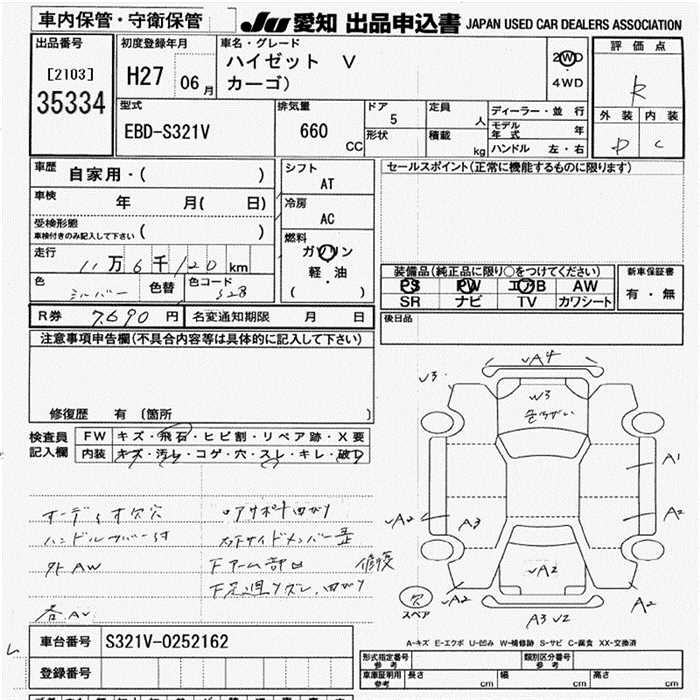 車内保管・守衛保管
JU 愛知 出品申込書 JAPAN USED CAR DEALERS ASSOCIATION
出品番号 初度登録年月 車名・グレード 評価点
[2103]
35334
H27 06月
ハイゼット V
カーゴ)
2WD
4WD
R
型式 排気量 ドア 定員 ディーラー・並行 外装 内装
EBD-S321V 660 CC 5 人 モデル年式 年 D C
形状 積載 kg ハンドル 左・右
車歴 自家用・( ) シフト セールスポイント(正常に機能するものに限ります)
AT
車検 年 月( 日) 冷房
AC
受検形態
車検付きのみ記入して下さい ( )
燃料
ガソリン
軽・油
( )
走行
11万6千120km
装備品(純正品に限り○をつけてください) 新車保証書
色 シルバー 色替 色コード S28
PS PW エアB AW 有・無
SR ナビ TV カワシート
R券 7,690円 名変通知期限 月 日 後日品
注意事項申告欄(不具合内容等は具体的に記入して下さい)
修復歴 有 (箇所 )
検査員 FW キズ・飛石・ヒビ割・リペア跡・X要
記入欄 内装 キズ・汚レ・コゲ・穴・スレ・キレ・破レ
√3
√A4
W3
A1
A2
√A2
A3
√A2
√A2
A2
A3 √2
オーディオ欠穴
ハンドルカバー付
外AW
修復
スペア
車台番号 S321V-0252162
登録番号
A-キズ E-エクボ U-凹み W-補修跡 S-サビ C-腐食 XX-交換済
形式指定番号 参考 類別区分番号 参考
車庫証明用 参考 長さ cm 幅 cm 高さ cm